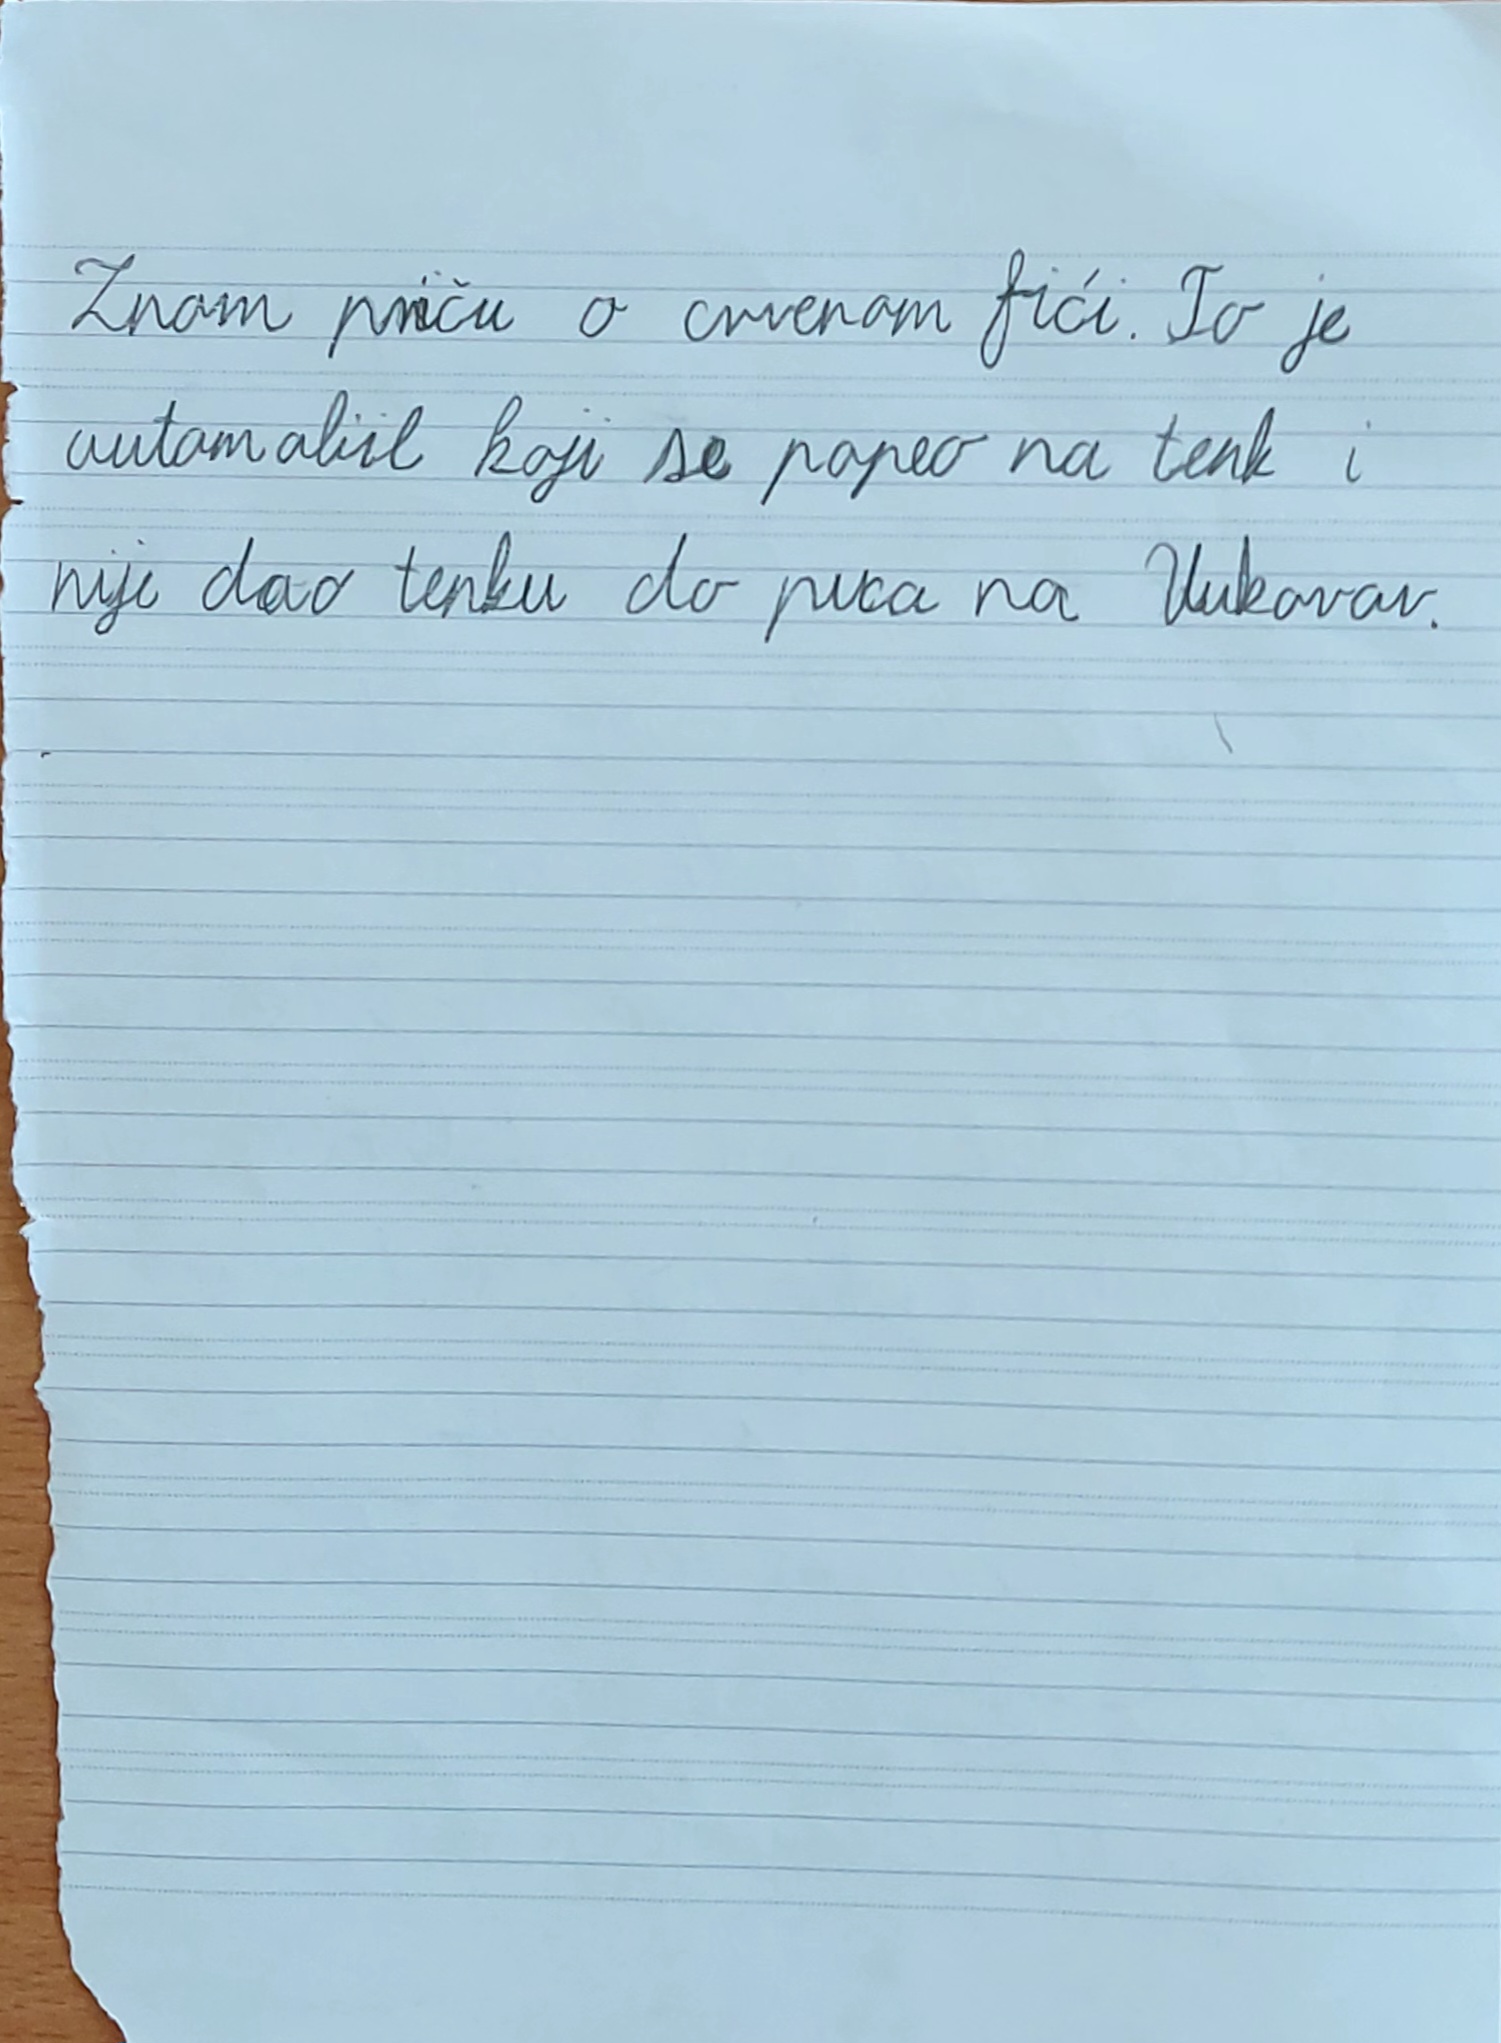 Znam priču o crvenom fići. To je
automobil koji se popeo na tenk i
nije dao tenku do puca na Vukovar.